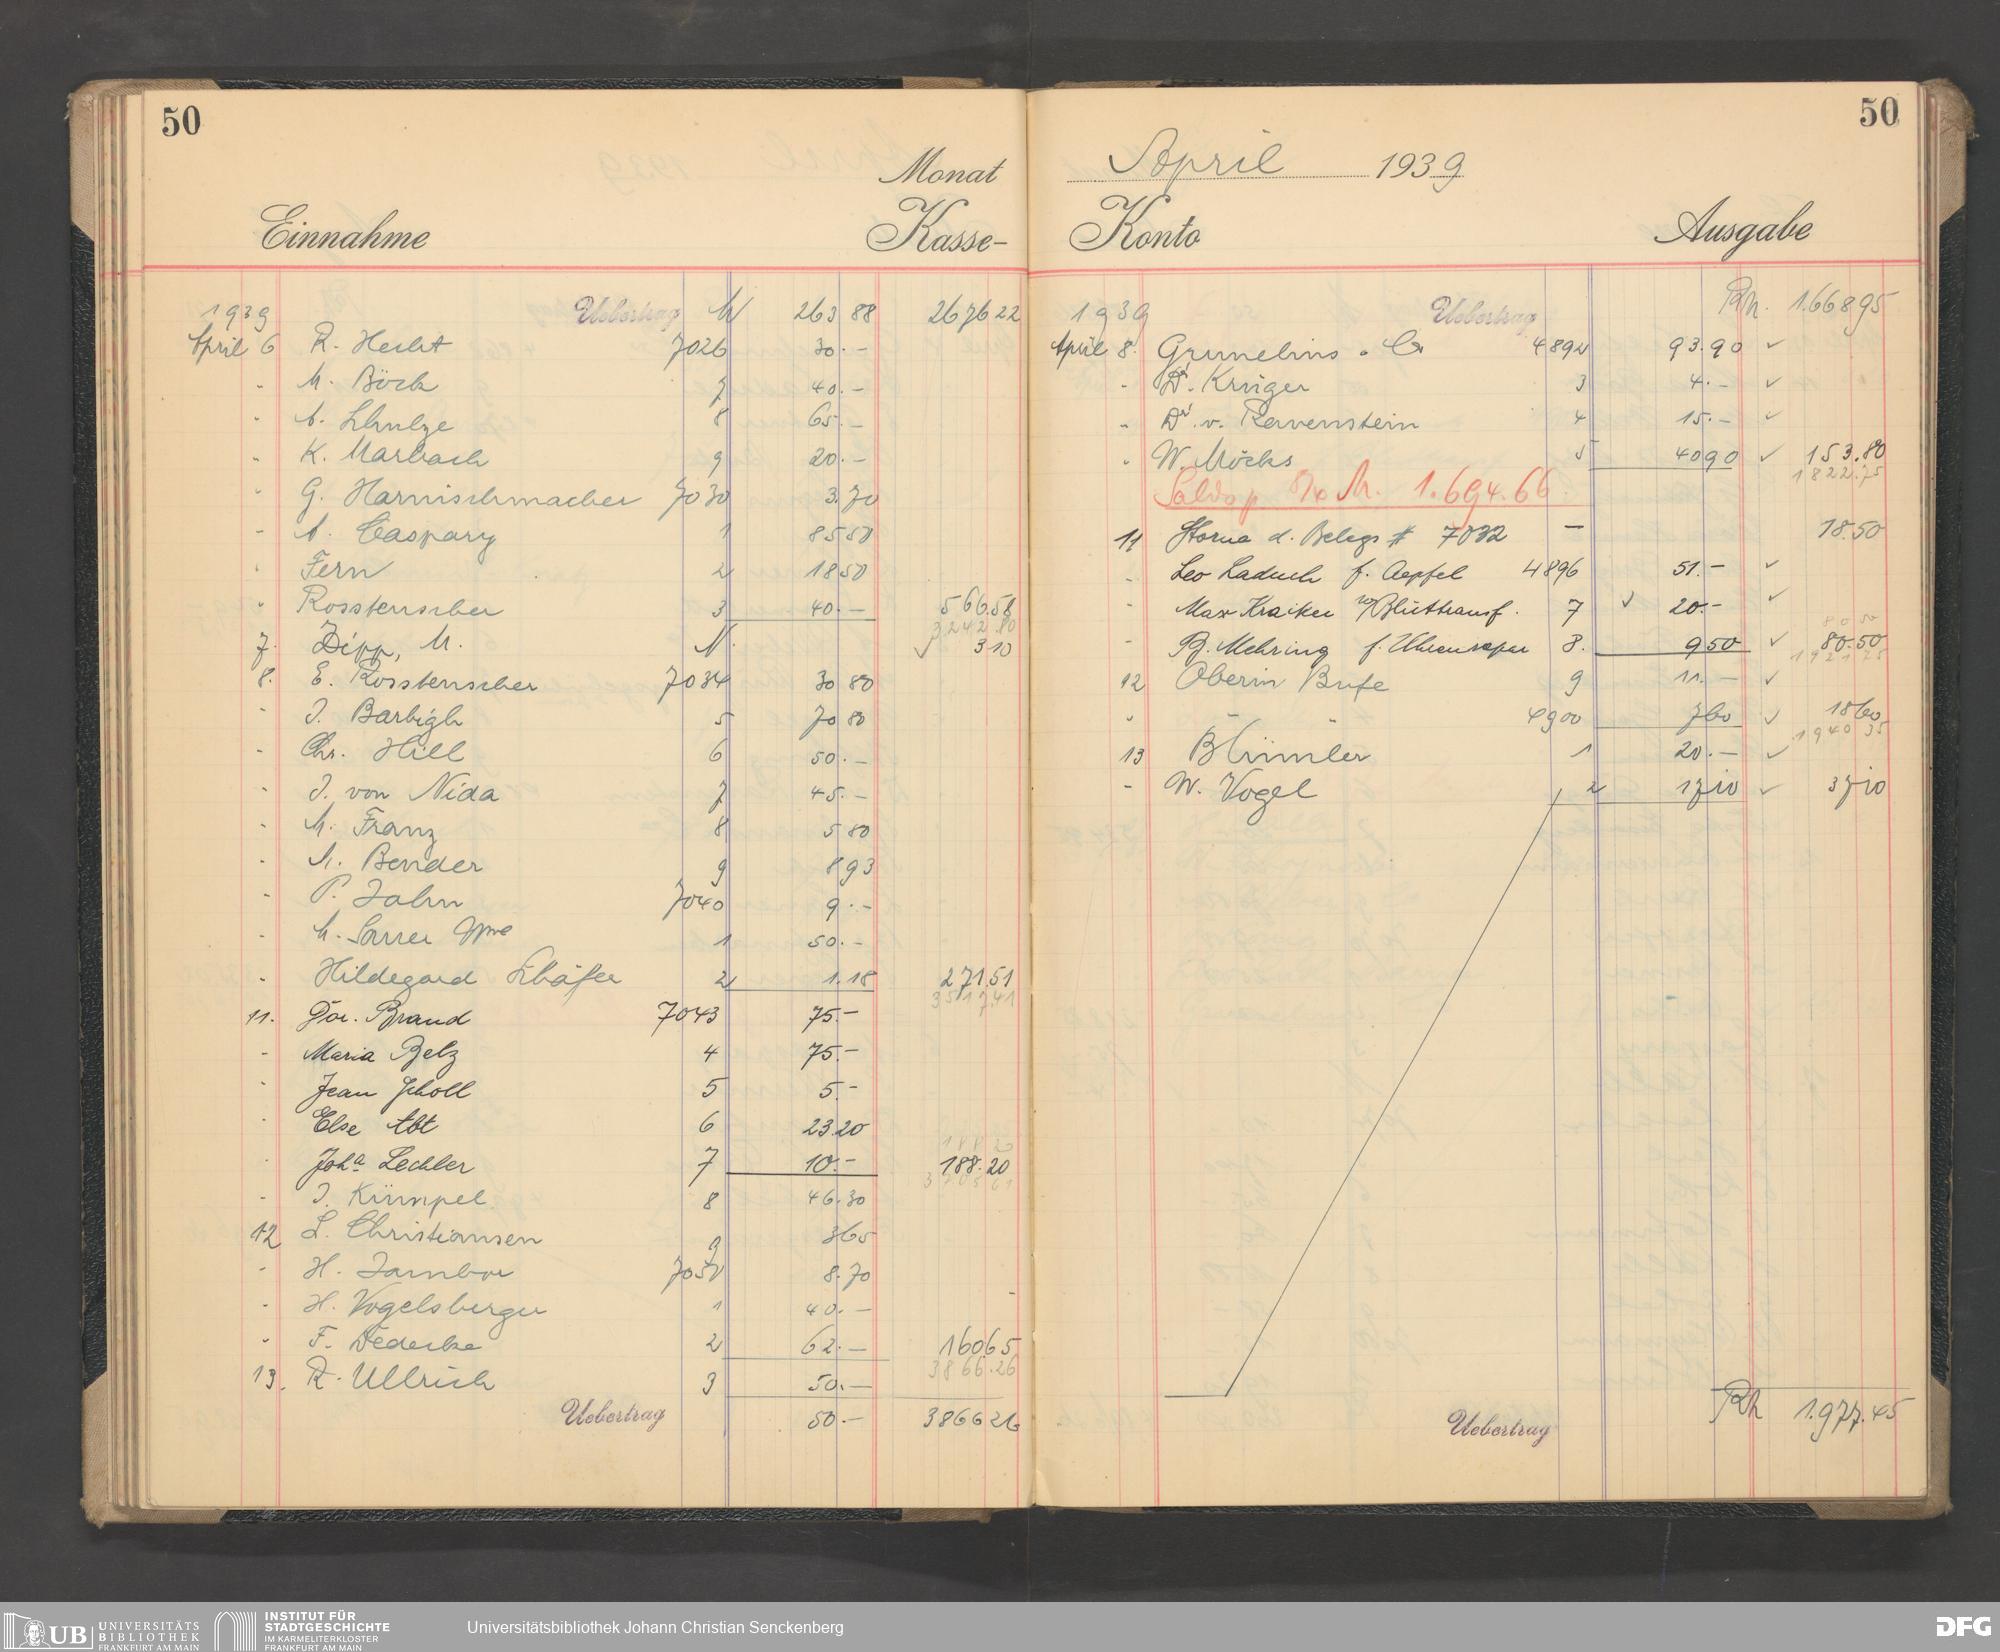 50
Monat
Einnahme Kasse-
1939 Uebertrag M 263 88 2676 22
April 6 R. Hecht 7026 30.-
" M. Böck 7 40.-
" A. Schulze 8 65.-
" K. Marbach 9 20.-
" G. Harnischmacher 7030 3.70
" A. Caspary 1 85 50
" Fern 2 18 50
" Rosstenscher 3 40.- 566.58
3242.80
7. Dipp, M. N. ✓ 3 10
8. E. Rosstenscher 7034 30 80
" J. Barbigh 5 70 80
" Chr. Hill 6 50.-
" J. von Nida 7 45.-
" M. Franz 8 5 80
" M. Bender 9 8 93
" P. Jahn 7040 9.-
" M. Sarrer Wwe 1 50.-
" Hildegard Schäfer 2 1.18 271.51
3517.41
11. Dor. Brand 7043 75.-
" Maria Belz 4 75.-
" Jean Scholl 5 5.-
" Else Abt 6 23.20
188 20
" Joha Lechler 7 10.- 188.20
3705 61
" J. Kümpel 8 46.30
12 L. Christiansen 9 3 65
" H. Jambor 7050 8.70
" H. Vogelsberger 1 40.-
" F. Dedecke 2 62.- 160.65
3866.26
13. R. Ullrich 3 50.-
Uebertrag 50.- 3866 26
50
April 1939
Konto Ausgabe
1939 Uebertrag RM. 1.668 95
April 8. Grunelius & Co 4892 93.90 ✓
" Dr. Krüger 3 4.- ✓
" Dr. v. Ravenstein 4 15.- ✓
" W. Möcks 5 40 90 ✓ 153.80
1822.75
Saldo p. 8/4 M. 1.694.66
11 Storno d. Belegs # 7032 - 18.50
" Leo Laduch f. Aepfel 4896 51.- ✓
" Max Kraiker f/Bluttransf. 7 ✓ 20.- ✓
80 50
" B. Mehring f. Uhrenrepar 8. 9 50 ✓ 80.50
1921 75
12 Oberin Bufe 9 11.- ✓
" " " 4900 7 60 ✓ 18 60
1940 35
13 Blümler 1 20.- ✓
" W. Vogel 2 17 10 ✓ 37 10
Uebertrag RM 1.977.45
UB UNIVERSITÄTS
BIBLIOTHEK
FRANKFURT AM MAIN
INSTITUT FÜR
STADTGESCHICHTE
IM KARMELITERKLOSTER
FRANKFURT AM MAIN
Universitätsbibliothek Johann Christian Senckenberg
DFG